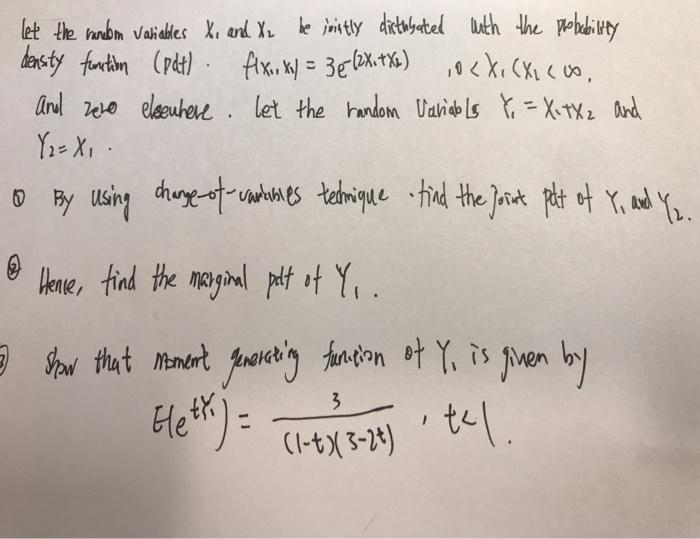 let the random variables X₁ and X₂ be jointly distributed with the probability
density function (pdf). f(x₁, x₂) = 3e^-(2x₁+x₂) , 0 < X₁ < X₂ < ∞,
and zero elsewhere. Let the random variables Y₁ = X₁+X₂ and
Y₂ = X₁.
① By using change-of-variables technique. find the Joint pdf of Y₁ and Y₂.
② Hence, find the marginal pdf of Y₁.
③ Show that moment generating function of Y₁ is given by
E(e^tY₁) = 3 / (1-t)(3-2t) , t<1.